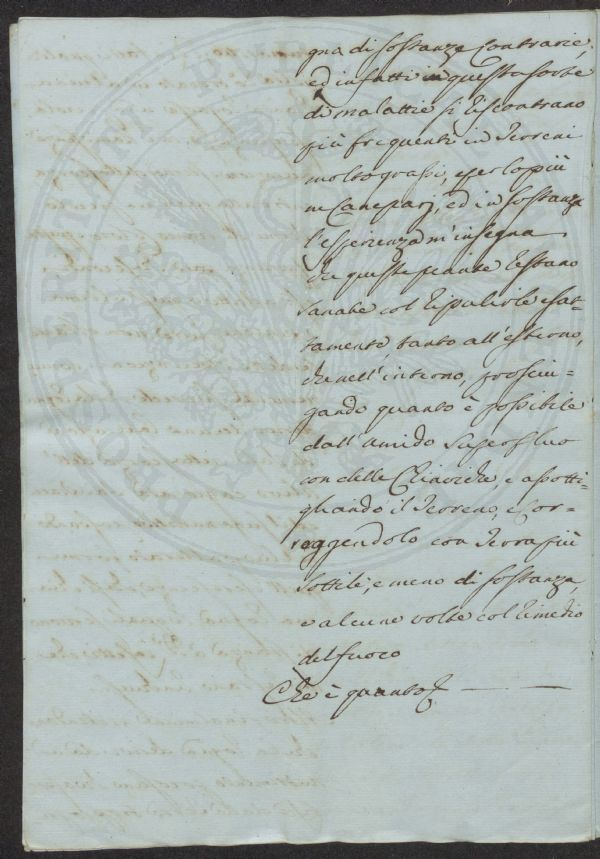 gna di sostanze Contrarie,
ed infatti in questa sorte
di malattie si riscontrano
più frequenti in Terreni
molto grassi, e per lo più
ne Caneparj, ed in sostanza
l'esperienza m'insegna
che queste piante restano
sanate col ripulirle esat-
tamente, tanto all'esterno,
che nell'interno, prosciu-
gando quanto è possibile
dall'umido superfluo
con delle Chiaviche, e assotti-
gliando il Terreno, e Cor-
reggendolo con Terra più
sottile, e meno di sostanza,
e alcune volte col rimedio
del fuoco
Che è quanto